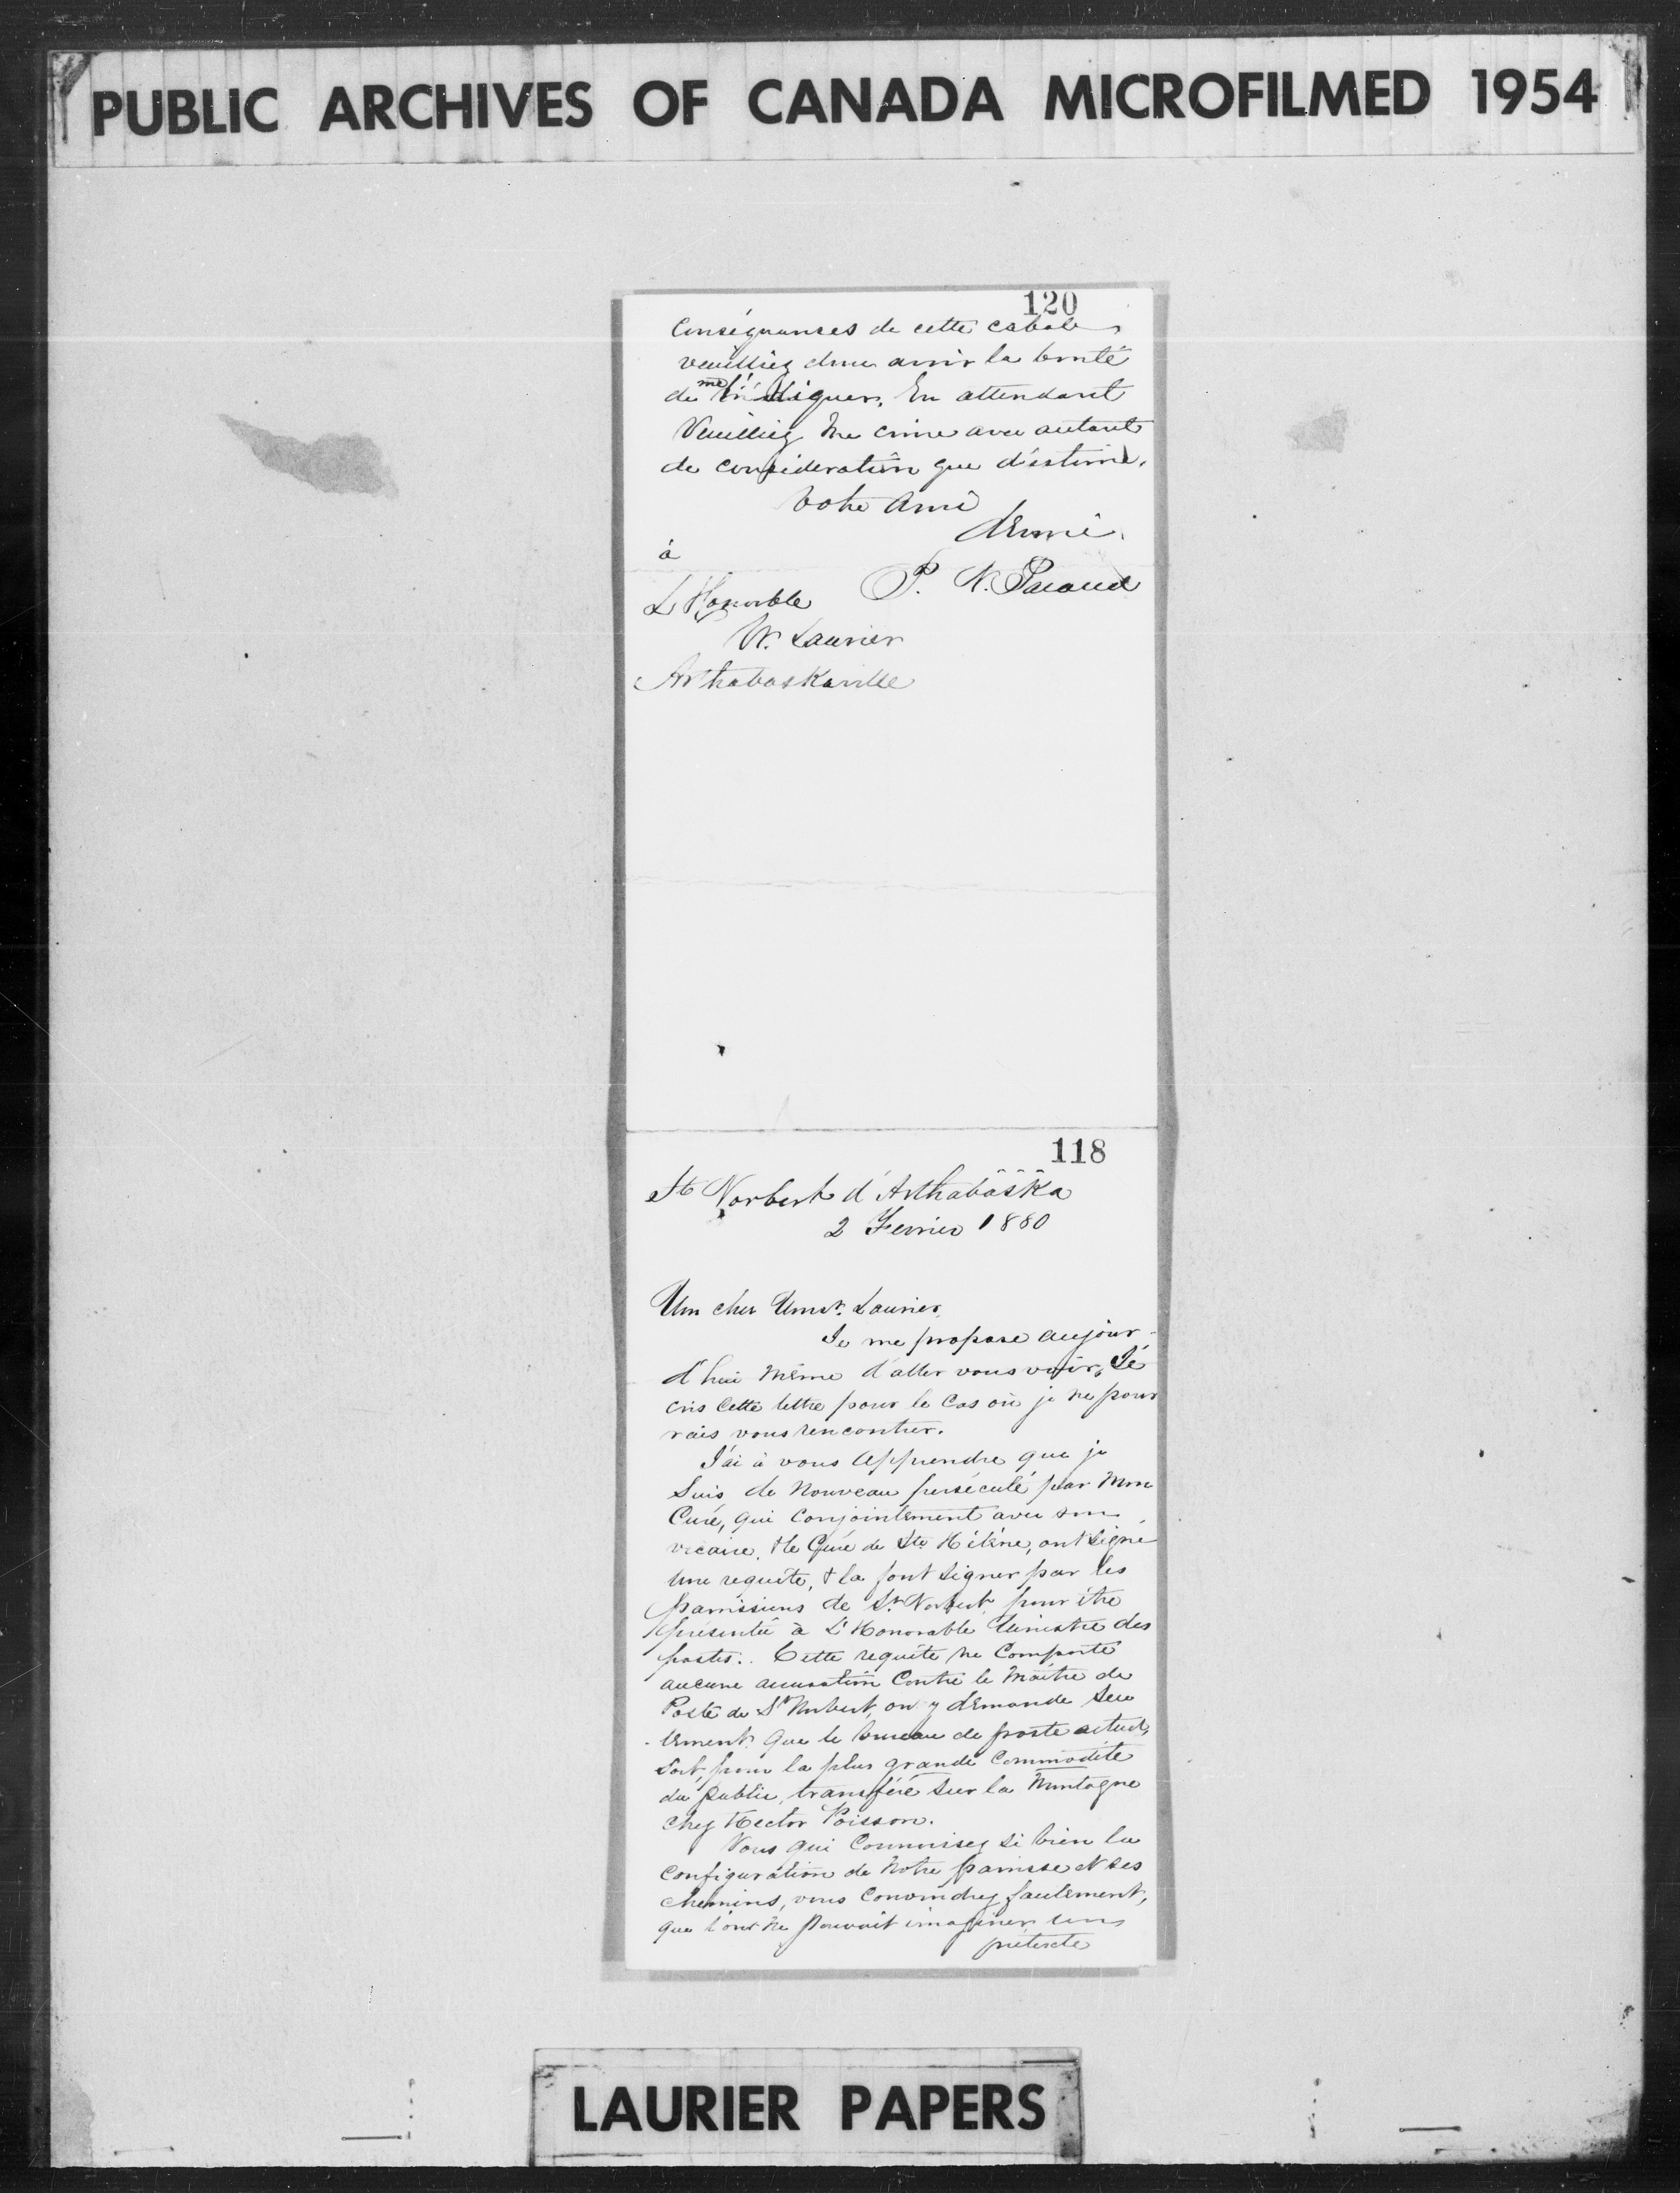 PUBLIC ARCHIVES OF CANADA MICROFILMED 1954
120
Conséquenses de cette cabale
veuilliez donc avoir la bonté
de me l'indiquer. En attendant
Veuilliez me croire avec autant
de considération que d'estime.
Votre Ami
dEvoué.
à
L'Honorble P. N. Pacaud
W. Laurier
Arthabaskaville
118
St Norbert d'Arthabâska
2 Fevrier 1880
Mon cher Monsr. Laurier
Je me propose aujour-
d'hui même d'aller vous voir, J'é
cris cette lettre pour le cas où je ne pour
rais vous rencontrer.
J'ai à vous apprendre que je
suis de nouveau persécuté par mon
Curé, qui conjointement avec son
vicaire, & le Curé de Ste Hélène, ont signé
une requête, & la font signer par les
paroissiens de St Norbert pour être
présentée à L'Honorable Ministre des
postes. Cette requête ne comporte
aucune accusation contre le Maître de
Poste de St Norbert, on y dEmande seu
lement que le bureau de poste actuel,
soit, pour la plus grande commodité
du public, transféré sur la Montagne
chez Hector Poisson.
Vous qui connoissez si bien la
configuration de notre paroisse et ses
chemins, vous conviendrez facilement,
que l'on ne pouvait imaginer un
prétexte
LAURIER PAPERS